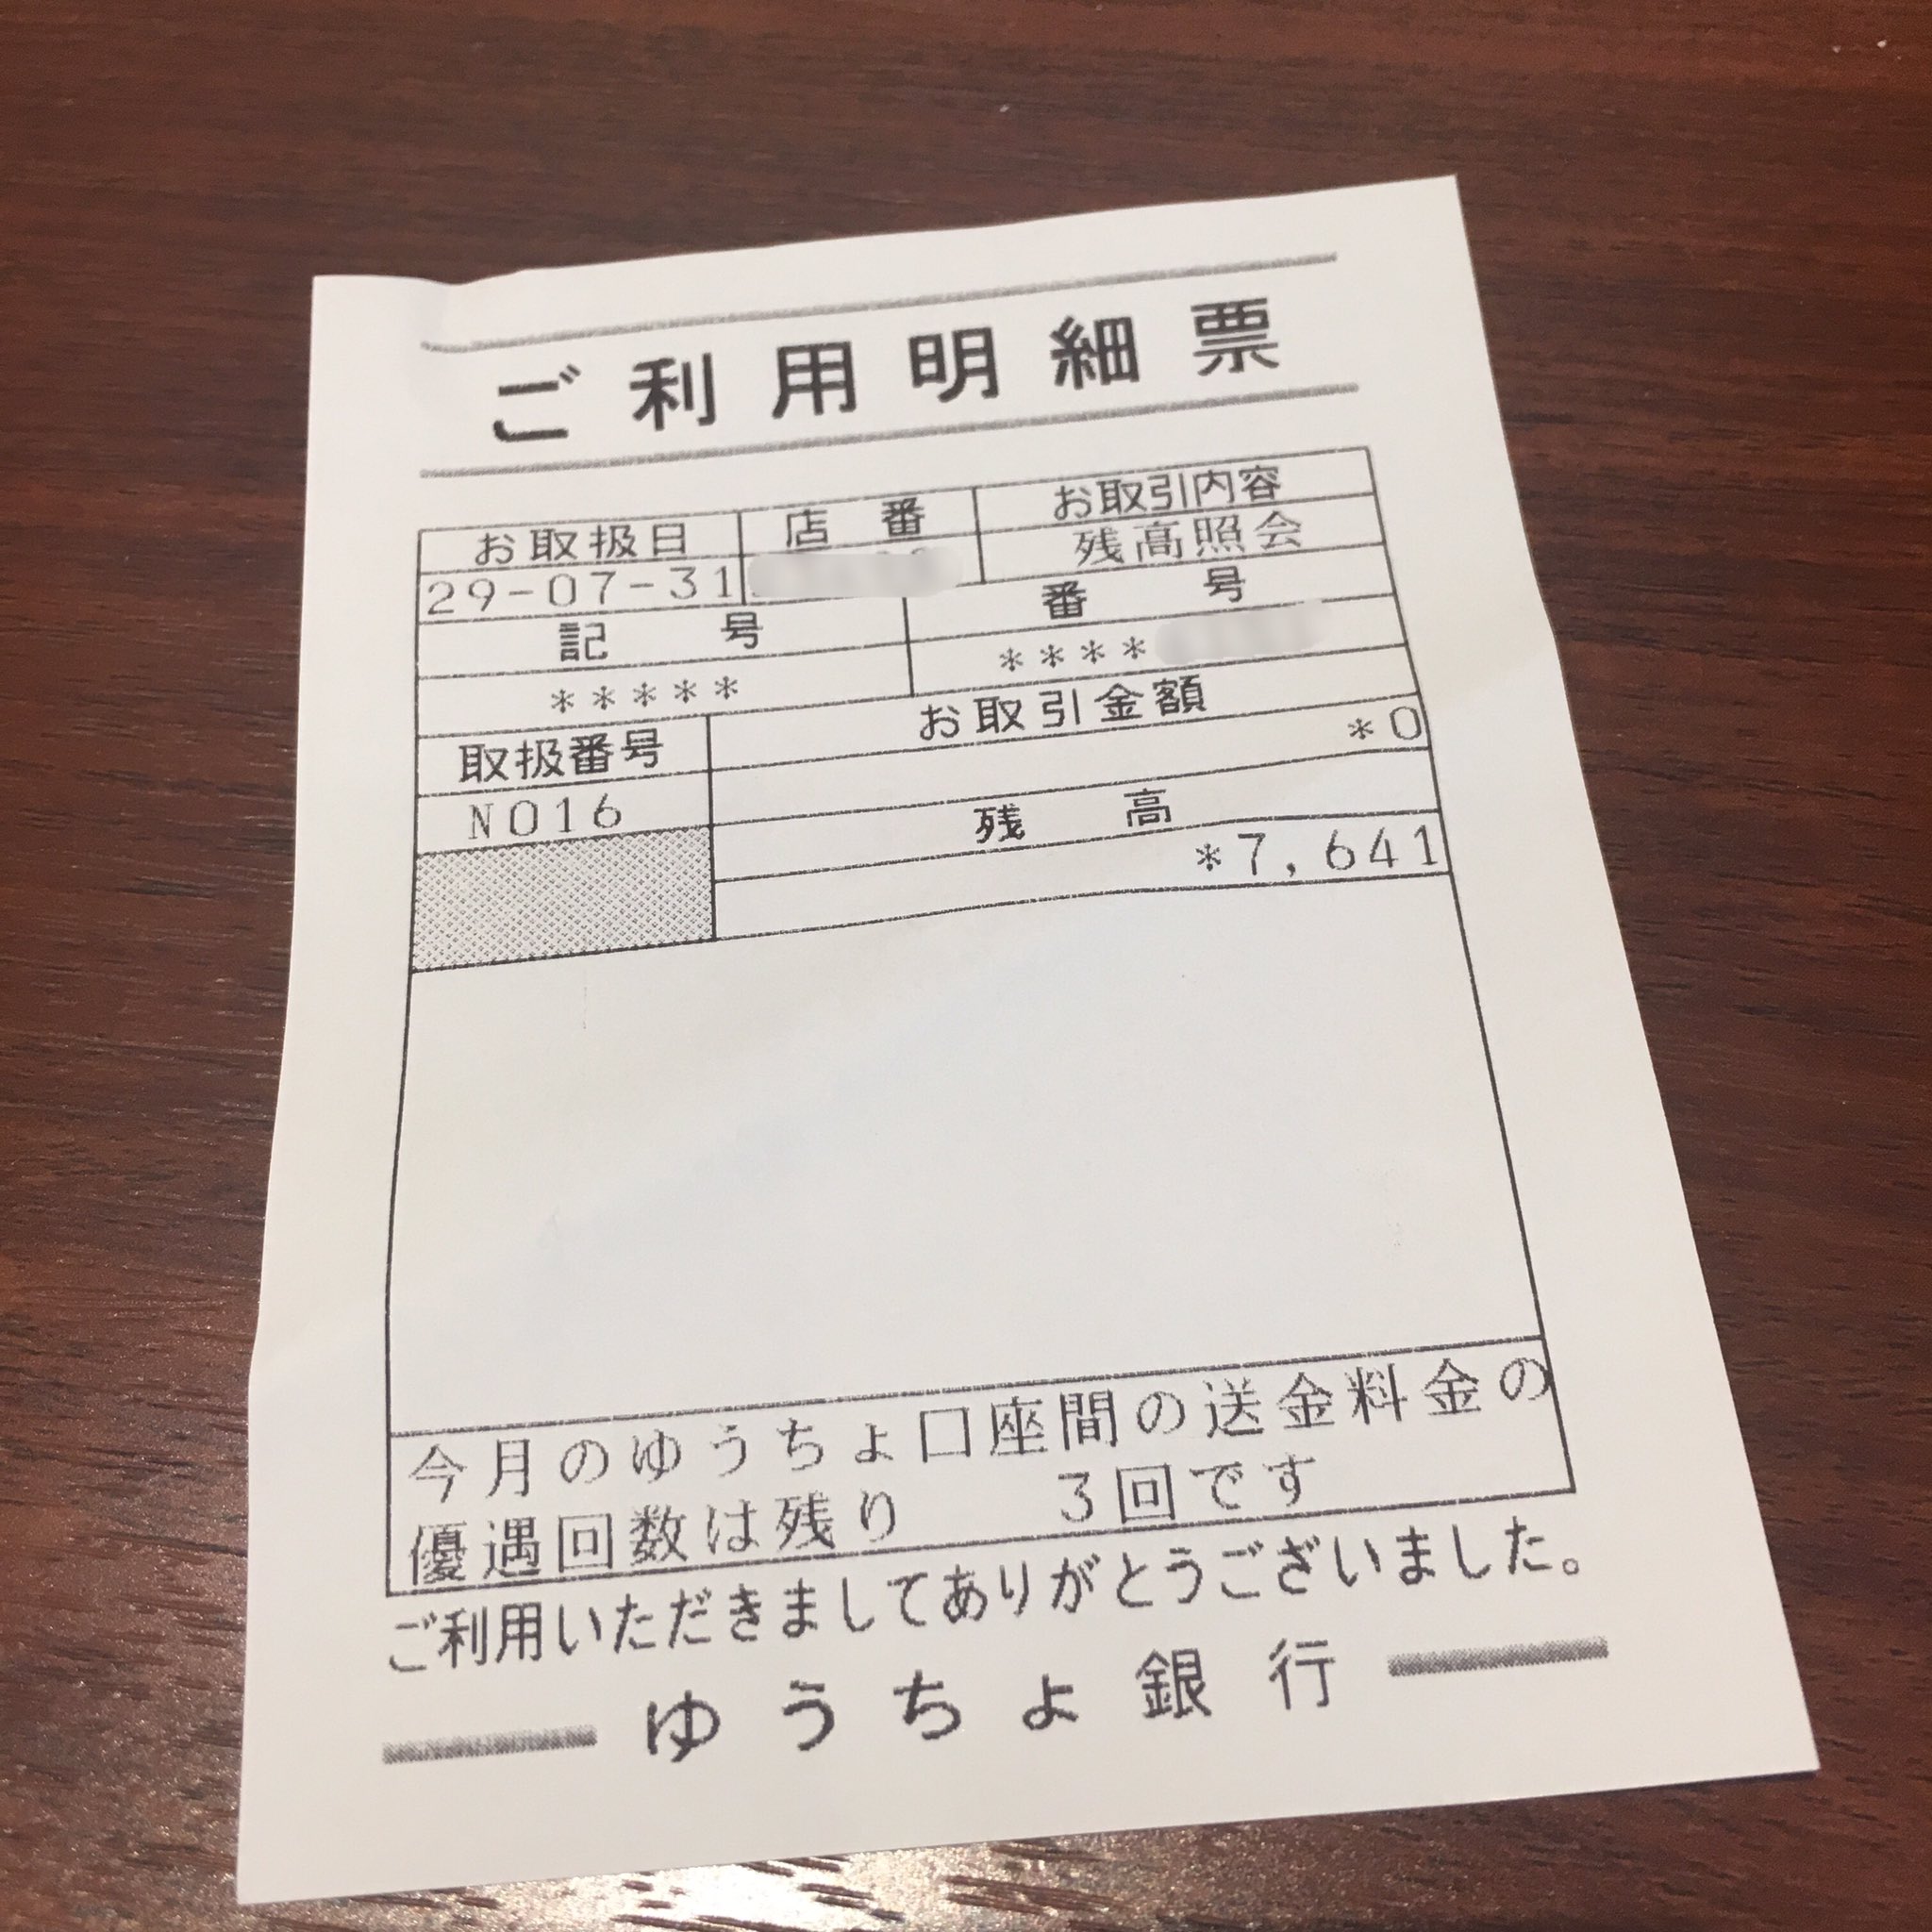 ご利用明細票
お取扱日 店番 お取引内容
29-07-31 残高照会
記号 番号
***** ****
取扱番号 お取引金額
N016 *0
残高
*7,641
今月のゆうちょ口座間の送金料金の
優遇回数は残り 3回です
ご利用いただきましてありがとうございました。
ゆうちょ銀行